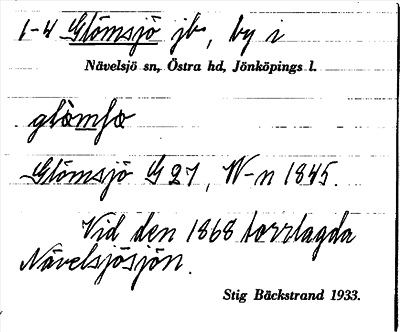 1-4 Glömsjö jb, by i
Nävelsjö sn, Östra hd, Jönköpings l.
glòmʃɷ
Glömsjö G 27, W-n 1845.
Vid den 1868 torrlagda
Nävelsjösjön.
Stig Bäckstrand 1933.